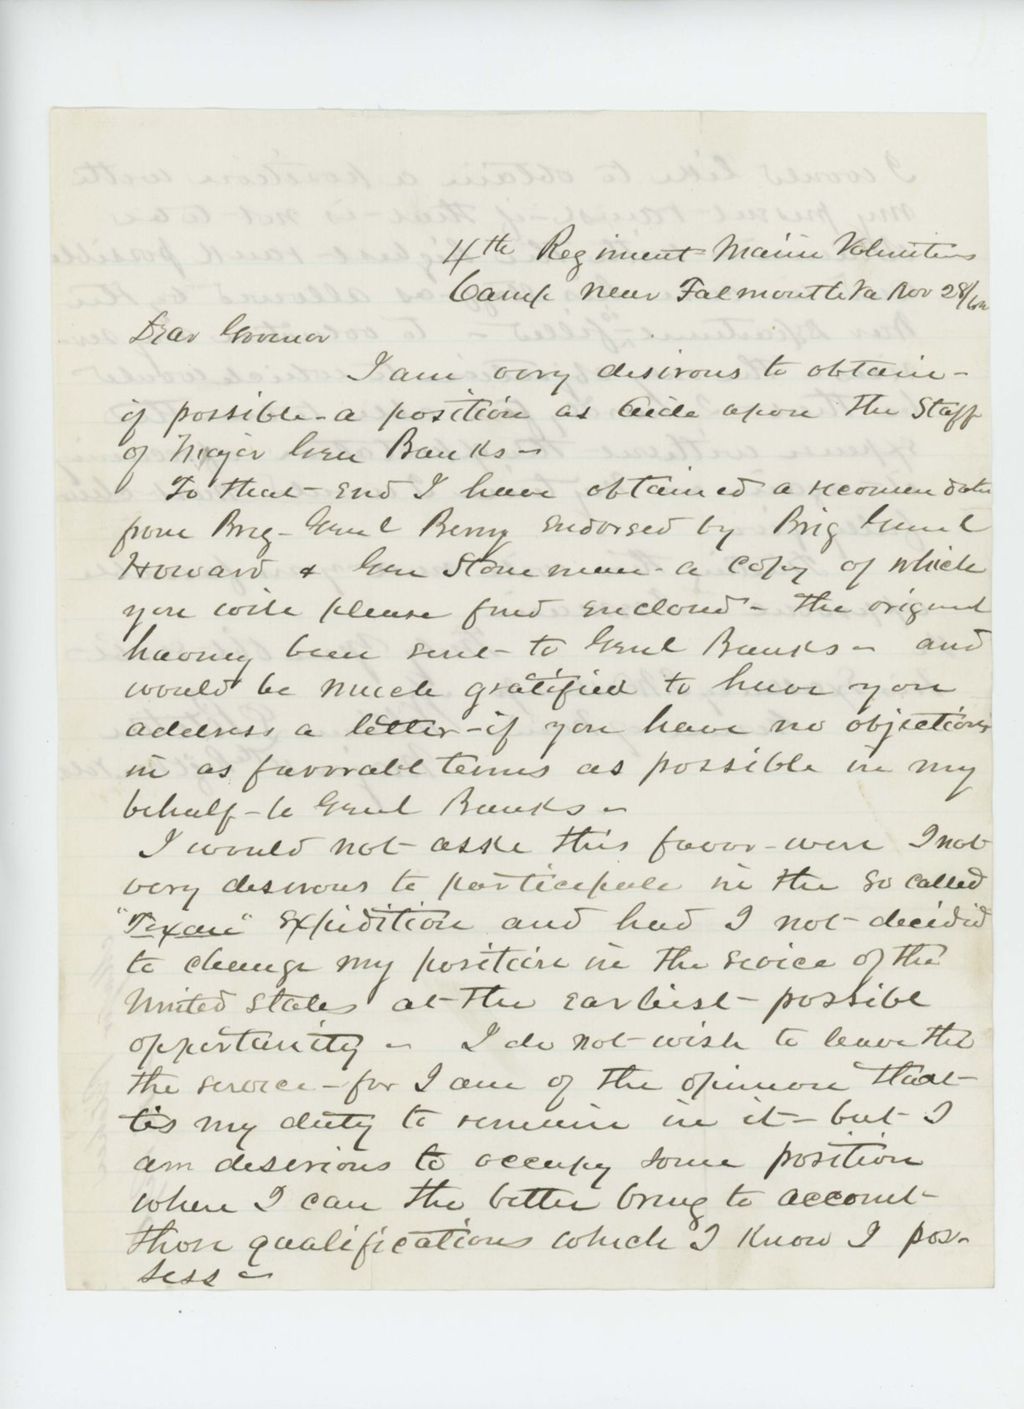 4th Regiment Maine Volunteers
Camp near Falmouth Va Nov 28/62
Dear Govenor
I am very desirous to obtain -
if possible - a position as Aide upon the Staff
of Major Genl Banks -
To that - End I have obtained a recomendatn
from Brig - Genl Berry Endorsed by Brig Genl
Howard & Gen Stoneman - a Copy of which
you will please find enclosed - the original
having been sent - to Genl Banks - and
would be much gratified to have you
address a letter - if you have no objections
in as favorable terms as possible in my
behalf - to Genl Banks -
I would not - aske this favor - were I not
very desirous to participate in the so called
"Texan" Expidition and had I not - decided
to change my position in the service of the
United States at - the earliest - possible
opportunity - I do not - wish to leave the
the service - for I am of the opinion that -
tis my duty to remain in it - but - I
am deserious to occupy some position
where I can the better bring to account -
those qualifications which I know I pos-
sess -